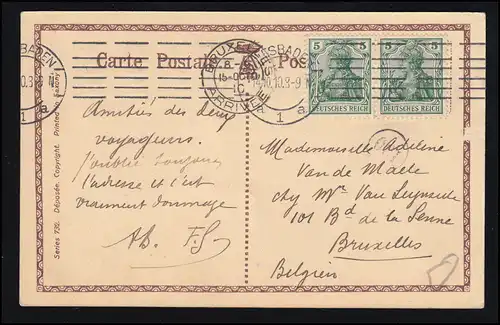 Carte Postale
Post
WIESBADEN
1 a
BRUXELLES
15-OCTO
10
ARRIVEE
10.10.8-9
1 a
5 5
5 5
DEUTSCHES REICH
DEUTSCHES REICH
Series 720. Déposée. Copyright. Printed in Saxony
Amitiés des deux
voyageurs.
J'oublie toujours
l'adresse et c'est
vraiment dommage
Ab. F.S
Mademoiselle Adeline
Van de Maele
chy Mr Van
101 Bd de la Senne
Bruxelles
Belgien